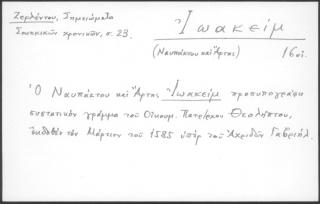 Ζερλέντου, Σημειώματα
Σιωπικῶν χρονικῶν, σ. 23.
Ἰωακείμ
(Ναυπάκτου καὶ Ἄρτης) 16 αἰ.
Ὁ Ναυπάκτου καὶ Ἄρτης Ἰωακείμ προσυπογράφει
συστατικὸν γράμμα τοῦ Οἰκουμ. Πατριάρχου Θεολήπτου,
ἐκδοθὲν τὸν Μάρτιον τοῦ 1585 ὑπὲρ τοῦ Ἀχριδῶν Γαβριήλ.